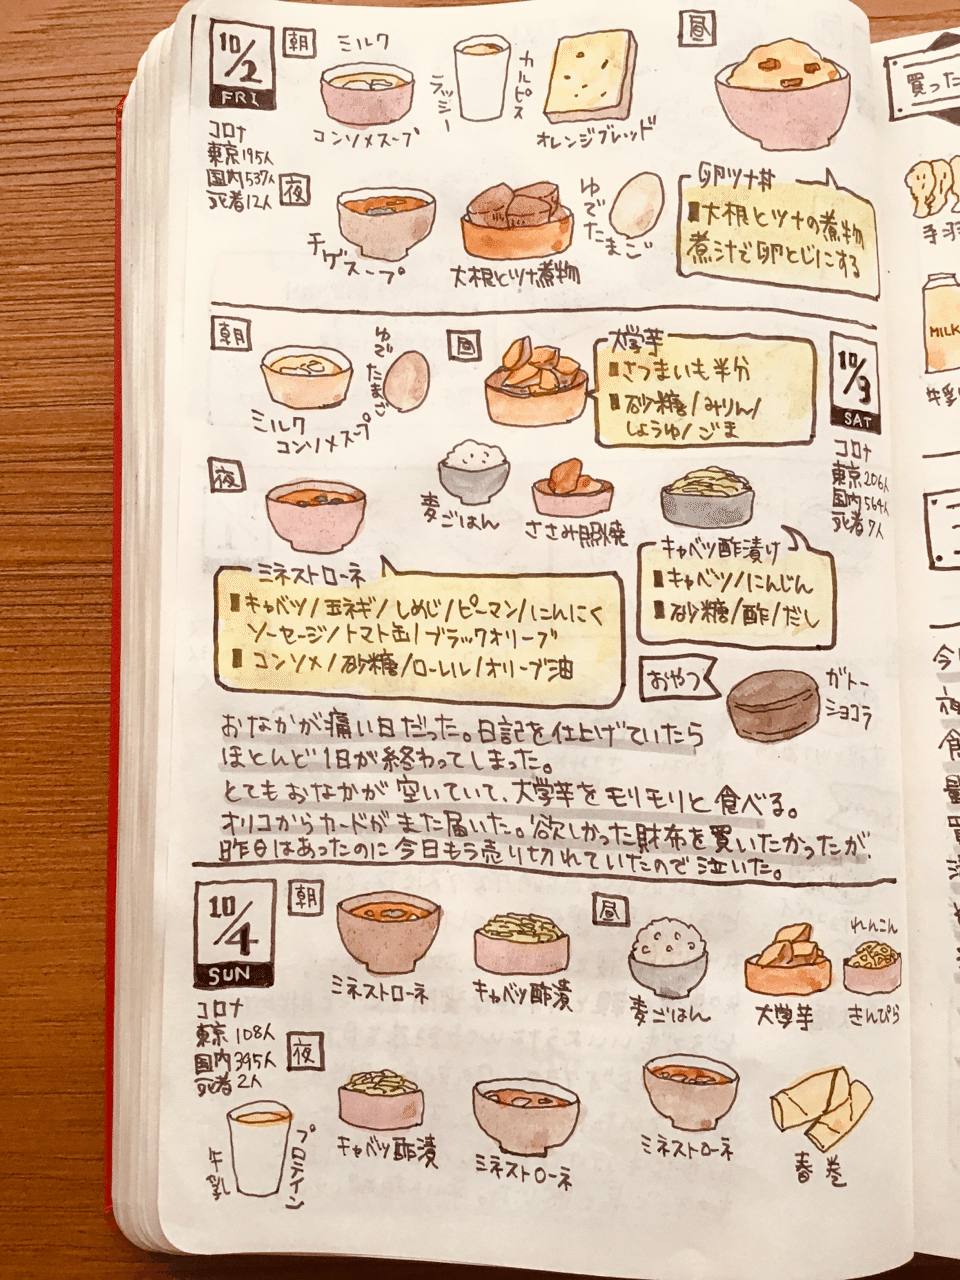 10/2
FRI
コロナ
東京195人
国内537人
死者12人
朝
ミルク
コンソメスープ
カルピス
ラッシー
オレンジブレッド
昼
卵ツナ丼
大根とツナの煮物
煮汁で卵とじにする
夜
チゲスープ
大根とツナ煮物
ゆでたまご
10/3
SAT
コロナ
東京206人
国内564人
死者7人
朝
ミルク
コンソメスープ
ゆでたまご
昼
大学芋
さつまいも半分
砂糖/みりん/
しょうゆ/ごま
夜
麦ごはん
ささみ照焼
キャベツ酢漬け
キャベツ/にんじん
砂糖/酢/だし
ミネストローネ
キャベツ/玉ネギ/しめじ/ピーマン/にんにく
ソーセージ/トマト缶/ブラックオリーブ
コンソメ/砂糖/ローレル/オリーブ油
おやつ
ガトー
ショコラ
おなかが痛い日だった。日記を仕上げていたら
ほとんど1日が終わってしまった。
とてもおなかが空いていて、大学芋をモリモリと食べる。
オリコからカードがまた届いた。欲しかった財布を買いたかったが、
昨日はあったのに今日もう売り切れていたので泣いた。
10/4
SUN
コロナ
東京108人
国内395人
死者2人
朝
ミネストローネ
キャベツ酢漬
昼
麦ごはん
大学芋
れんこん
きんぴら
夜
牛乳
プロテイン
キャベツ酢漬
ミネストローネ
ミネストローネ
春巻
買った
手羽
MILK
牛乳